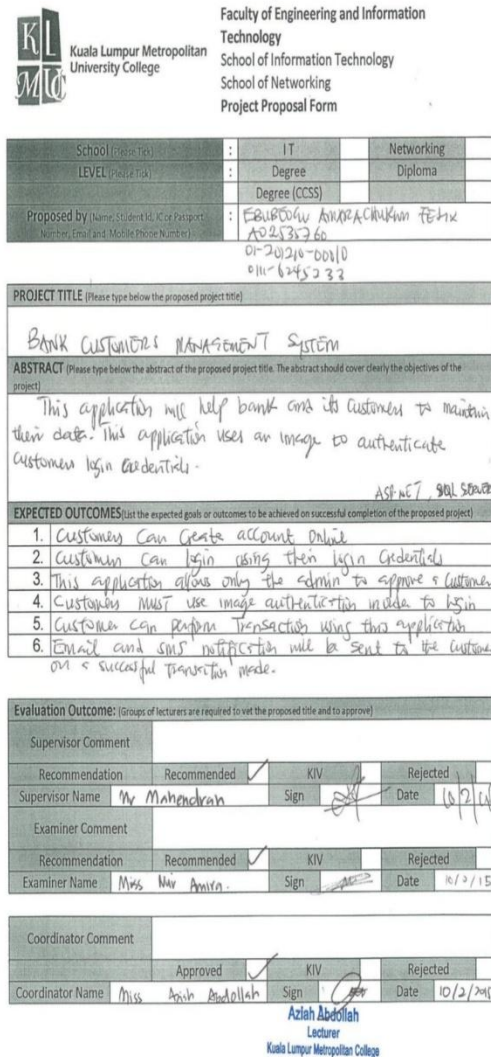 KL
MUC
Kuala Lumpur Metropolitan
University College
Faculty of Engineering and Information
Technology
School of Information Technology
School of Networking
Project Proposal Form
School (Please Tick) : IT Networking
LEVEL (Please Tick) : Degree Diploma
Degree (CCSS)
Proposed by (Name, Student Id, IC or Passport : EBUBEOGU AMARACHUKWU FELIX
Number, Email and Mobile Phone Number) A02535760
01-201210-00010
0111-6245233
PROJECT TITLE (Please type below the proposed project title)
BANK CUSTOMERS MANAGEMENT SYSTEM
ABSTRACT (Please type below the abstract of the proposed project title. The abstract should cover clearly the objectives of the
project)
This application will help bank and its customers to maintain
their data. This application uses an image to authenticate
customers login credentials.
ASP.NET, SQL SERVER
EXPECTED OUTCOMES (List the expected goals or outcomes to be achieved on successful completion of the proposed project)
1. Customers Can Create account Online
2. Customers Can login using their login Credentials
3. This application allows only the admin to approve a Customer
4. Customers MUST use image authentication inorder to login
5. Customer can perform Transaction using this application
6. Email and sms notification will be sent to the customer
on a successful transaction made.
Evaluation Outcome: (Groups of lecturers are required to vet the proposed title and to approve)
Supervisor Comment
Recommendation Recommended ✓ KIV Rejected
Supervisor Name Mr Mahendran Sign Date 10/2/
Examiner Comment
Recommendation Recommended ✓ KIV Rejected
Examiner Name Miss Nur Amira. Sign Date 10/2/15
Coordinator Comment
Approved ✓ KIV Rejected
Coordinator Name Miss Aziah Abdollah Sign Date 10/2/2015
Aziah Abdollah
Lecturer
Kuala Lumpur Metropolitan College